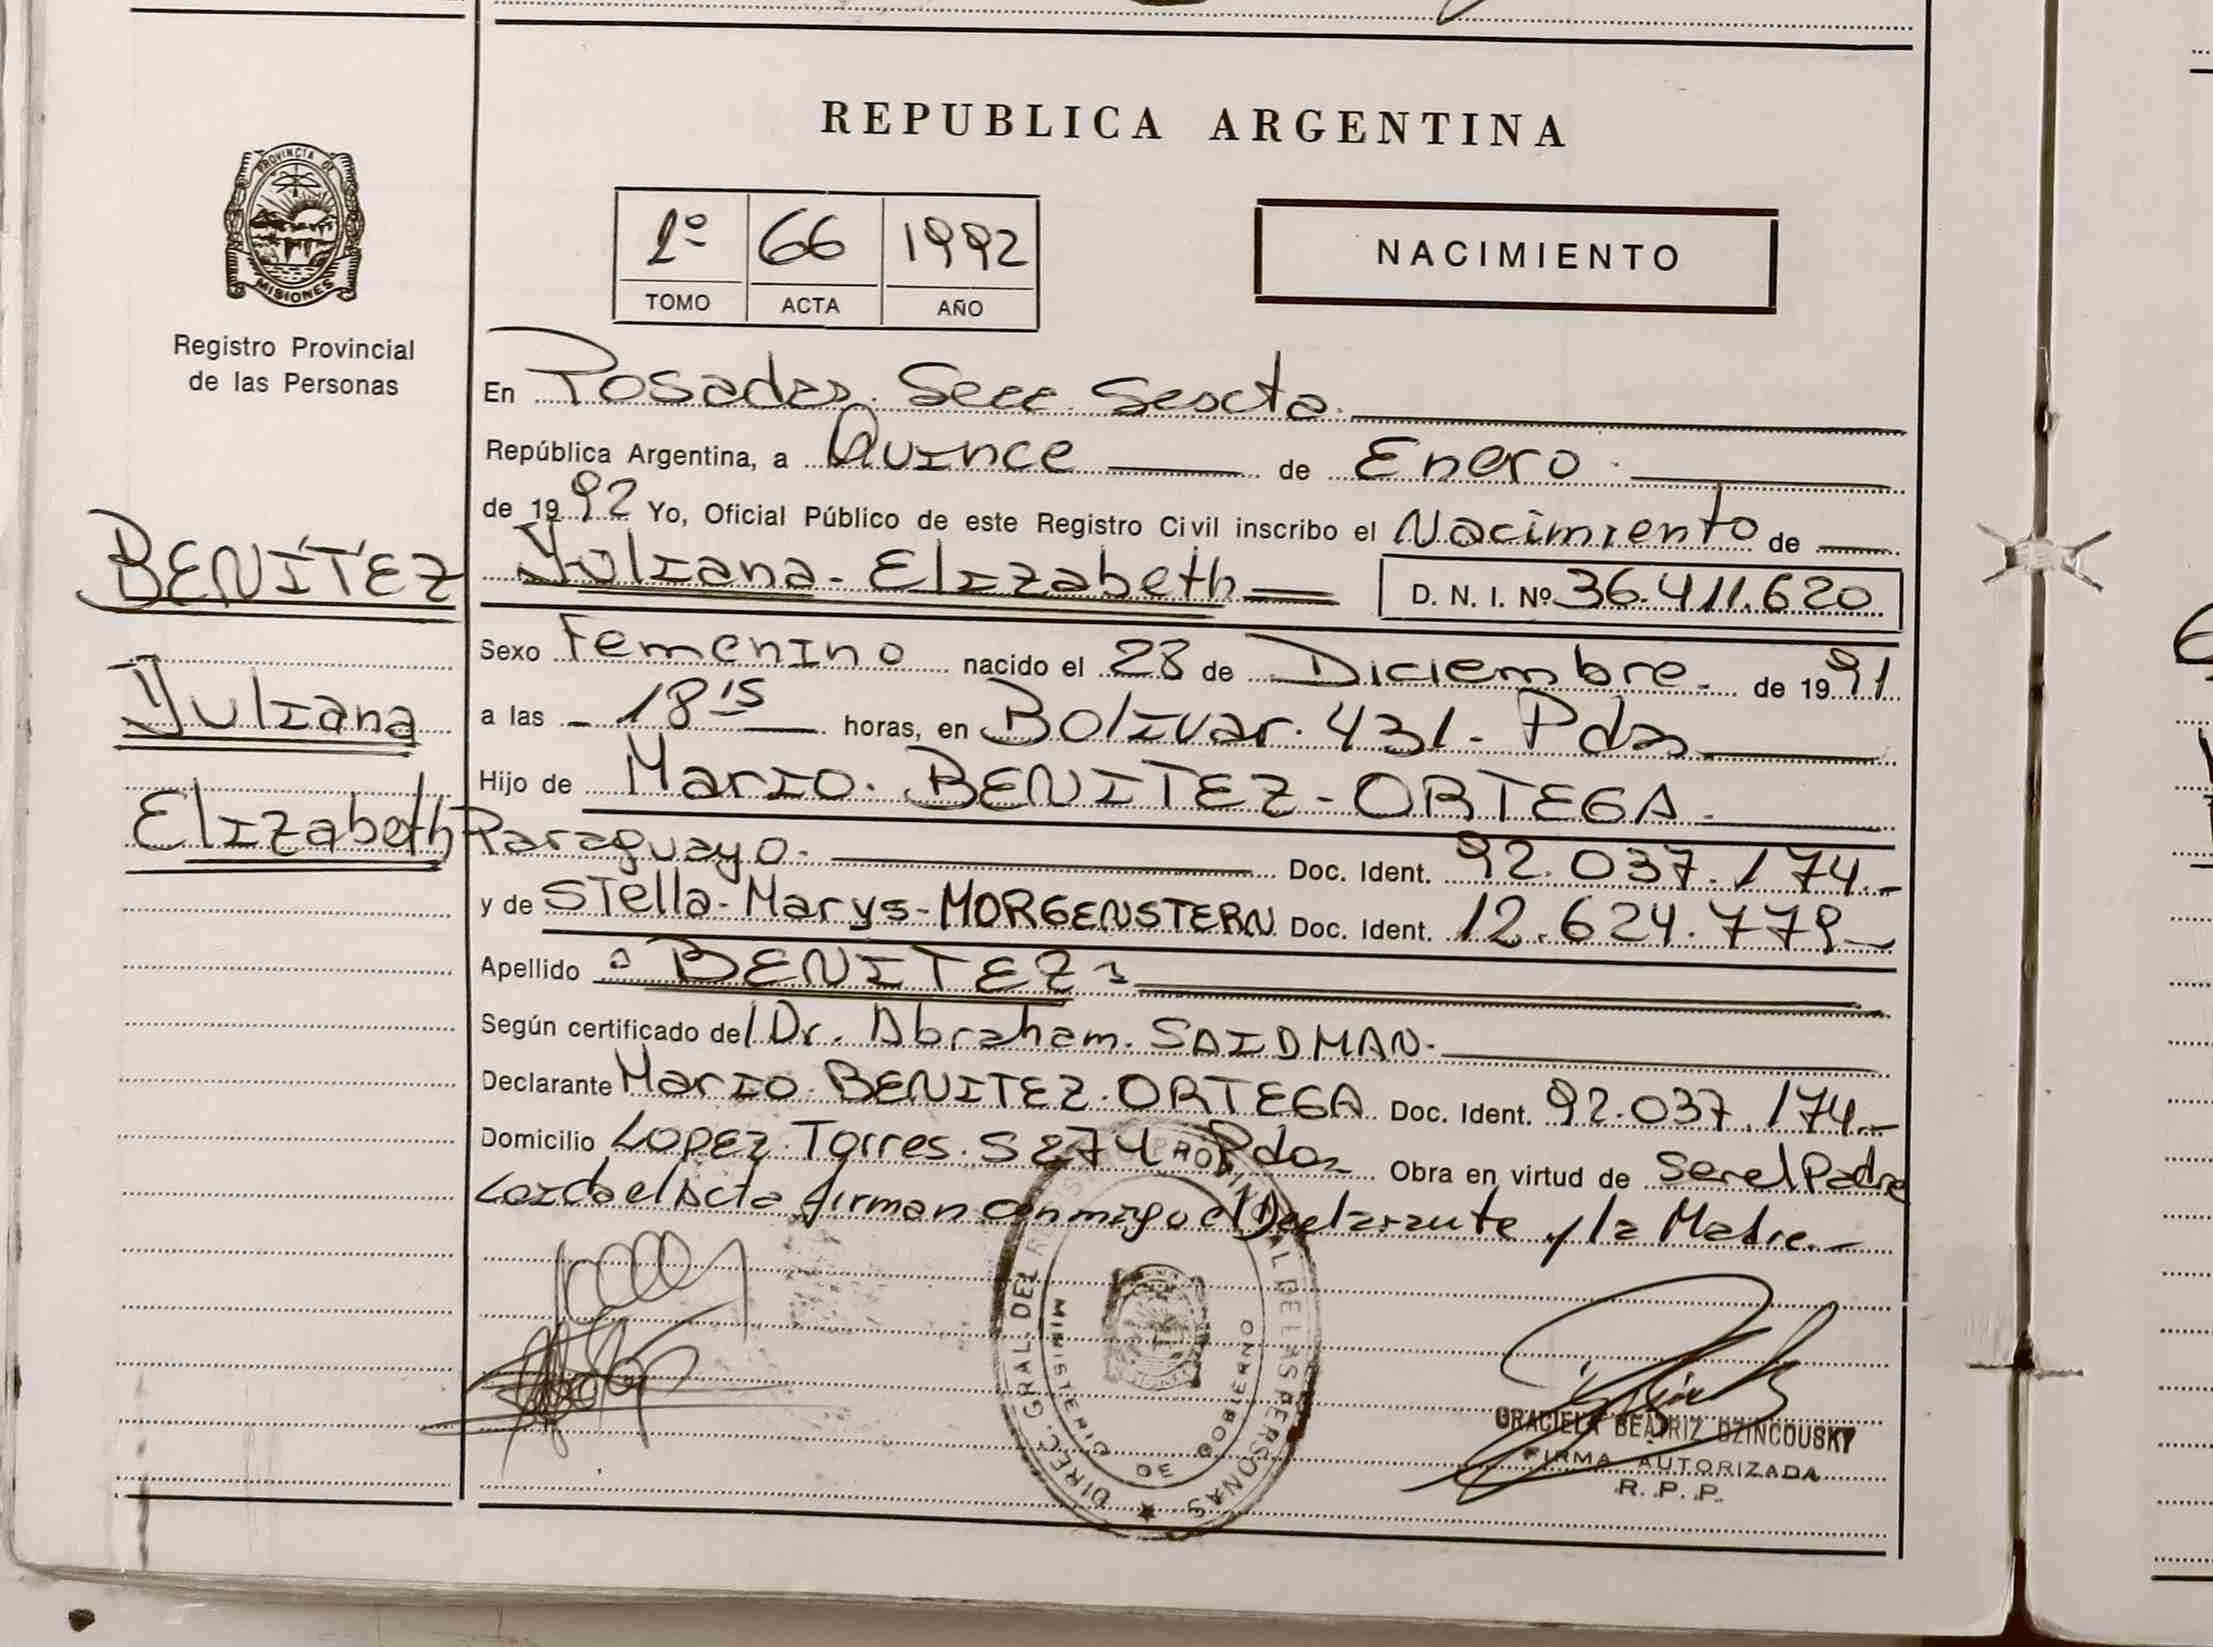 REPUBLICA ARGENTINA
PROVINCIA DE
MISIONES
Registro Provincial
de las Personas
1º 66 1992
TOMO ACTA AÑO
NACIMIENTO
En Posadas. Secc. Sexta.
República Argentina, a Quince de Enero.
de 1992 Yo, Oficial Público de este Registro Civil inscribo el Nacimiento de
BENÍTEZ
Yuliana - Elizabeth D. N. I. Nº 36.411.620
Sexo Femenino nacido el 28 de Diciembre. de 1991
Yuliana
a las 18 15 horas, en Bolivar. 431 - Pdas
Hijo de Mario. BENITEZ - ORTEGA.
Elizabeth
Paraguayo. Doc. Ident. 92.037.174.-
y de Stella - Marys - MORGENSTERN. Doc. Ident. 12.624.779-
Apellido BENITEZ
Según certificado del Dr. Abraham. SAIDMAN.
Declarante Mario. BENITEZ. ORTEGA Doc. Ident. 92.037.174.-
Domicilio LOPEZ. Torres. 5274 Pdas Obra en virtud de Ser el Padre
Leida el Acta firman conmigo el Declarante y la Madre.-
DIREC. GRAL. DEL PERSONAS
MINISTERIO DE GOBIERNO
GRACIELA BEATRIZ DZINCOUSKY
FIRMA AUTORIZADA
R. P. P.